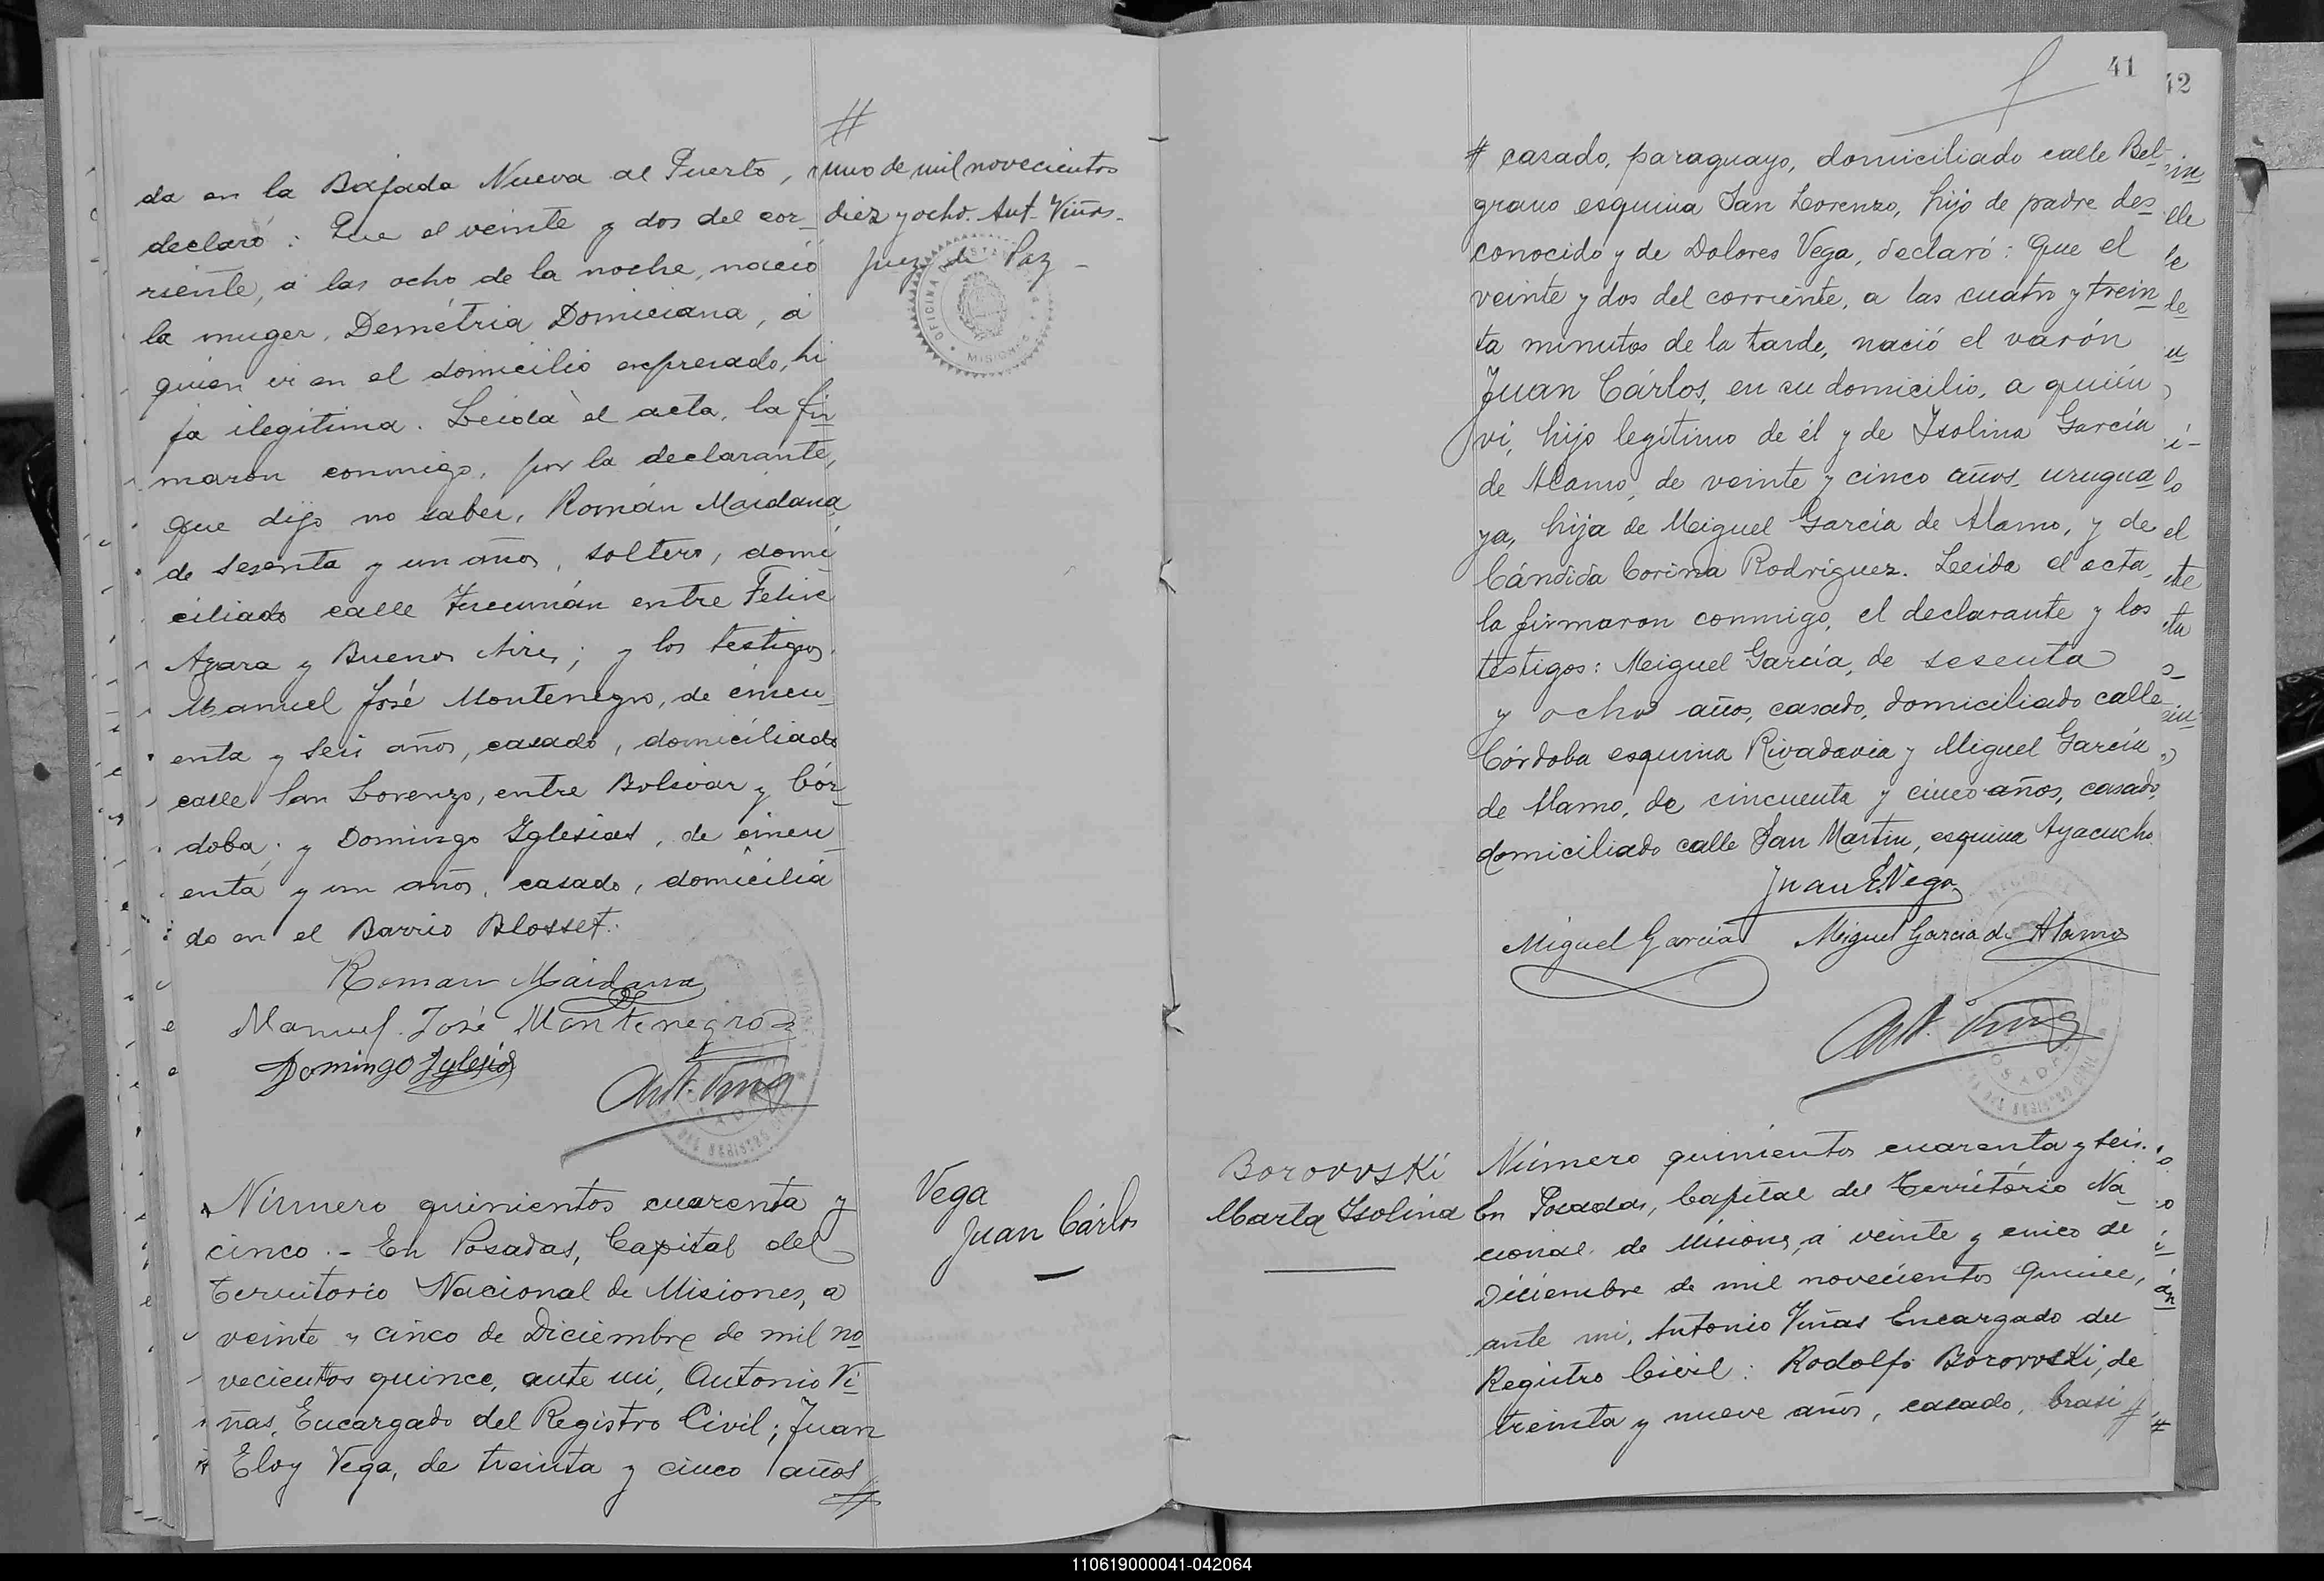 da en la Bajada Nueva al Puerto,
declaró: Que el veinte y dos del cor-
riente, á las ocho de la noche, nació
la muger, Demétria Domiciana, á
quien vi en el domicilio expresado, hi
ja ilegitima. Leida el acta, la fir
maron conmigo, por la declarante,
que dijo no saber, Román Maidana
de sesenta y un años, soltero, domi
ciliado calle Tucumán entre Felix
Azara y Buenos Aires; y los testigos
Manuel José Montenegro, de cincu
enta y seis años, casado, domiciliado
calle San Lorenzo, entre Bolivar y Cór
doba; y Domingo Iglesias, de cincu
enta y un años, casado, domicilia
do en el Barrio Blosset.
Roman Maidana
Manuel José Montenegro
Domingo Iglesias
Ant. Viñas
#
uno de mil novecientos
diez y ocho. Ant. Viñas.
Juez de Paz
OFICINA
MISIONES
Número quinientos cuarenta y
cinco.- En Posadas, Capital del
Territorio Nacional de Misiones, a
veinte y cinco de Diciembre de mil no
vecientos quince, ante mi, Antonio Vi
ñas, Encargado del Registro Civil; Juan
Eloy Vega, de treinta y cinco años
#
Vega
Juan Cárlos
41
42
# casado, paraguayo, domiciliado calle Bel
grano esquina San Lorenzo, hijo de padre des
conocido y de Dolores Vega, declaró: Que el
veinte y dos del corriente, a las cuatro y trein
ta minutos de la tarde, nació el varón
Juan Cárlos, en su domicilio, a quién
vi, hijo legítimo de él y de Isolina García
de Alamo, de veinte y cinco años, urugua
ya, hija de Miguel García de Alamo, y de
Cándida Corina Rodríguez. Leida el acta,
la firmaron conmigo, el declarante y los
testigos: Miguel García, de sesenta
y ocho años, casado, domiciliado calle
Córdoba esquina Rivadavia y Miguel García
de Alamo, de cincuenta y cinco años, casado,
domiciliado calle San Martin, esquina Ayacucho
Juan E. Vega
Miguel García
Miguel Garcia de Alamo
Ant. Viñas
POSADAS
Borovvski
Marta Isolina
Número quinientos cuarenta y seis.
En Posadas, Capital del Território Na
cional de Misiones, á veinte y cinco de
Diciembre de mil novecientos quince,
ante mi, Antonio Viñas Encargado del
Registro Civil: Rodolfo Borovvski, de
treinta y nueve años, casado, brasi #
110619000041-042064